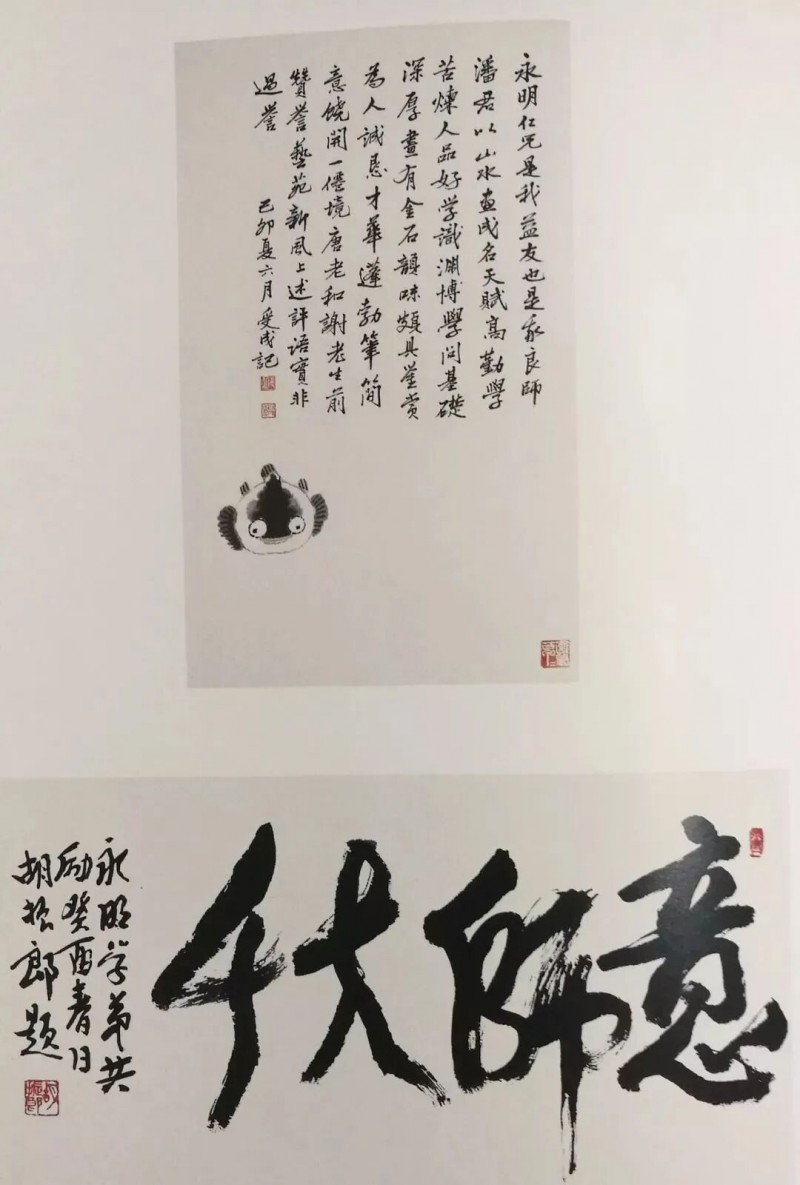 永明仁兄是我益友也是我良師
潘君以山水画成名天賦高勤學
苦煉人品好学識渊博學问基礎
深厚畫有金石韻味頗具鉴赏
為人誠恳才華蓬勃筆简
意饶開一僊境唐老和謝老生前
贊誉藝苑新風上述評语實非
過誉
己卯夏六月受成記
意師大千
永明学弟共
励癸酉春日
胡振郎题